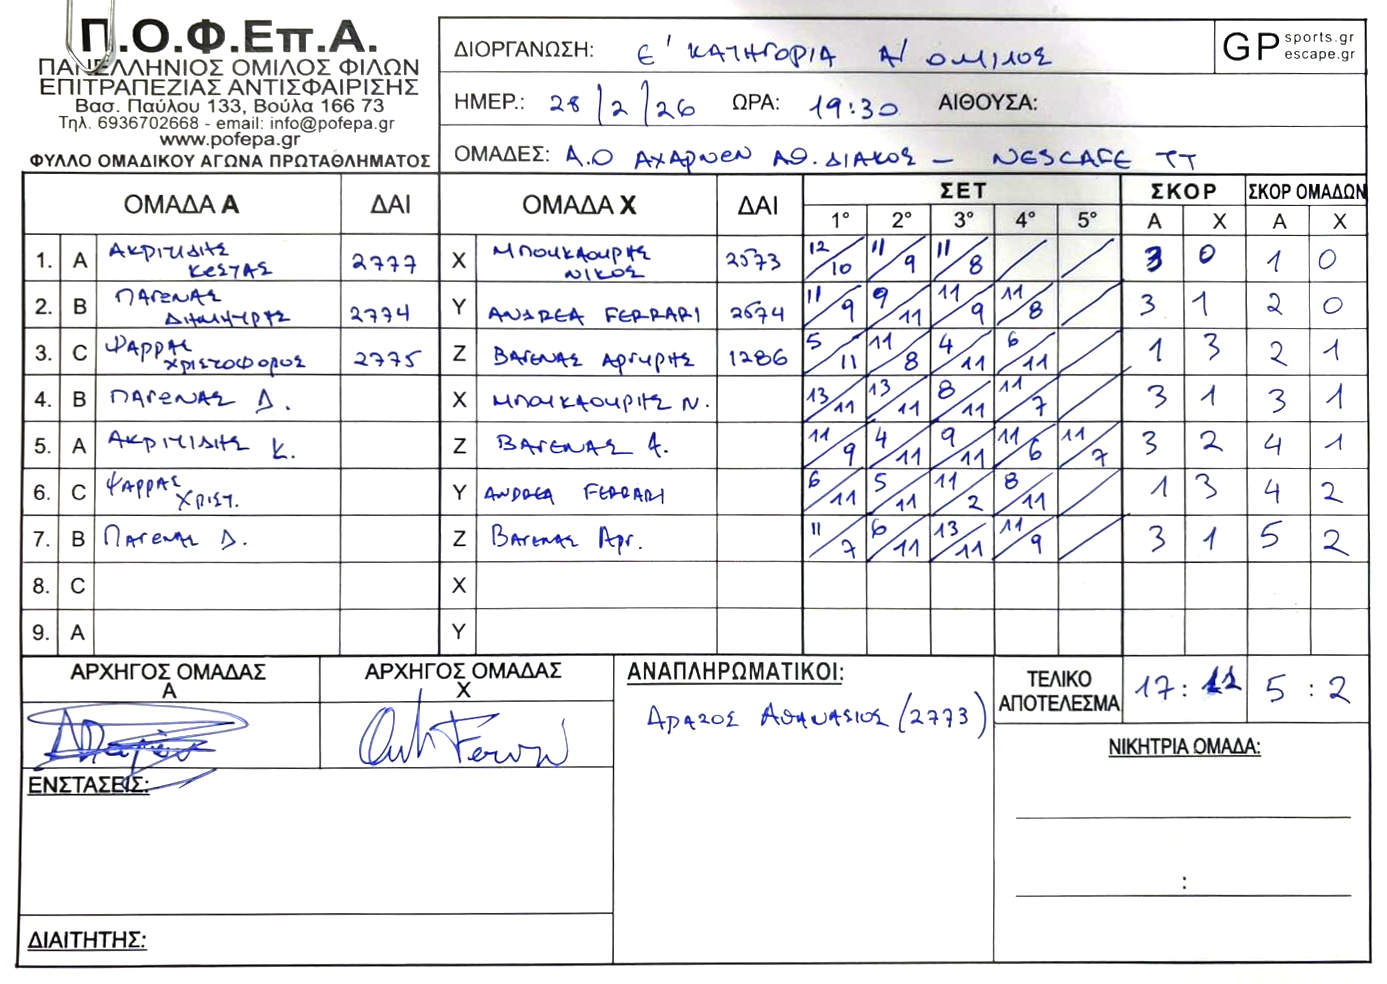 Π.Ο.Φ.Επ.Α.
ΠΑΝΕΛΛΗΝΙΟΣ ΟΜΙΛΟΣ ΦΙΛΩΝ
ΕΠΙΤΡΑΠΕΖΙΑΣ ΑΝΤΙΣΦΑΙΡΙΣΗΣ
Βασ. Παύλου 133, Βούλα 166 73
Τηλ. 6936702668 - email: info@pofepa.gr
www.pofepa.gr
ΦΥΛΛΟ ΟΜΑΔΙΚΟΥ ΑΓΩΝΑ ΠΡΩΤΑΘΛΗΜΑΤΟΣ
ΔΙΟΡΓΑΝΩΣΗ: Ε' ΚΑΤΗΓΟΡΙΑ Α' ΟΜΙΛΟΣ
GP sports.gr escape.gr
ΗΜΕΡ.: 28/2/26 ΩΡΑ: 19:30 ΑΙΘΟΥΣΑ:
ΟΜΑΔΕΣ: Α.Ο ΑΧΑΡΝΕΝ ΑΘ. ΔΙΑΚΟΣ - NESCAFE TT
ΟΜΑΔΑ Α ΔΑΙ ΟΜΑΔΑ Χ ΔΑΙ ΣΕΤ ΣΚΟΡ ΣΚΟΡ ΟΜΑΔΩΝ
1° 2° 3° 4° 5° Α Χ Α Χ
1. A ΑΚΡΙΤΙΔΗΣ ΚΩΣΤΑΣ 2777 X ΜΠΟΥΚΑΟΥΡΗΣ ΝΙΚΟΣ 2573 12/10 11/9 11/8 / / 3 0 1 0
2. B ΠΑΓΕΝΑΣ ΔΗΜΗΤΡΗΣ 2774 Y ANDREA FERRARI 2574 11/9 9/11 11/9 11/8 / 3 1 2 0
3. C ΨΑΡΡΑΣ ΧΡΙΣΤΟΦΟΡΟΣ 2775 Z ΒΑΓΕΝΑΣ ΑΡΓΥΡΗΣ 1286 5/11 11/8 4/11 6/11 / 1 3 2 1
4. B ΠΑΓΕΝΑΣ Δ. X ΜΠΟΥΚΑΟΥΡΗΣ Ν. 13/11 13/11 8/11 11/7 / 3 1 3 1
5. A ΑΚΡΙΤΙΔΗΣ Κ. Z ΒΑΓΕΝΑΣ Α. 11/9 4/11 9/11 11/6 11/7 3 2 4 1
6. C ΨΑΡΡΑΣ ΧΡΙΣΤ. Y ANDREA FERRARI 6/11 5/11 11/2 8/11 / 1 3 4 2
7. B ΠΑΓΕΝΑΣ Δ. Z ΒΑΓΕΝΑΣ ΑΡΓ. 11/7 6/11 13/11 11/9 / 3 1 5 2
8. C X
9. A Y
ΑΡΧΗΓΟΣ ΟΜΑΔΑΣ Α ΑΡΧΗΓΟΣ ΟΜΑΔΑΣ Χ ΑΝΑΠΛΗΡΩΜΑΤΙΚΟΙ: ΤΕΛΙΚΟ ΑΠΟΤΕΛΕΣΜΑ 17 : 11 5 : 2
ΔΡΑΖΟΣ ΑΘΑΝΑΣΙΟΣ (2773)
ΝΙΚΗΤΡΙΑ ΟΜΑΔΑ:
ΕΝΣΤΑΣΕΙΣ:
:
ΔΙΑΙΤΗΤΗΣ: